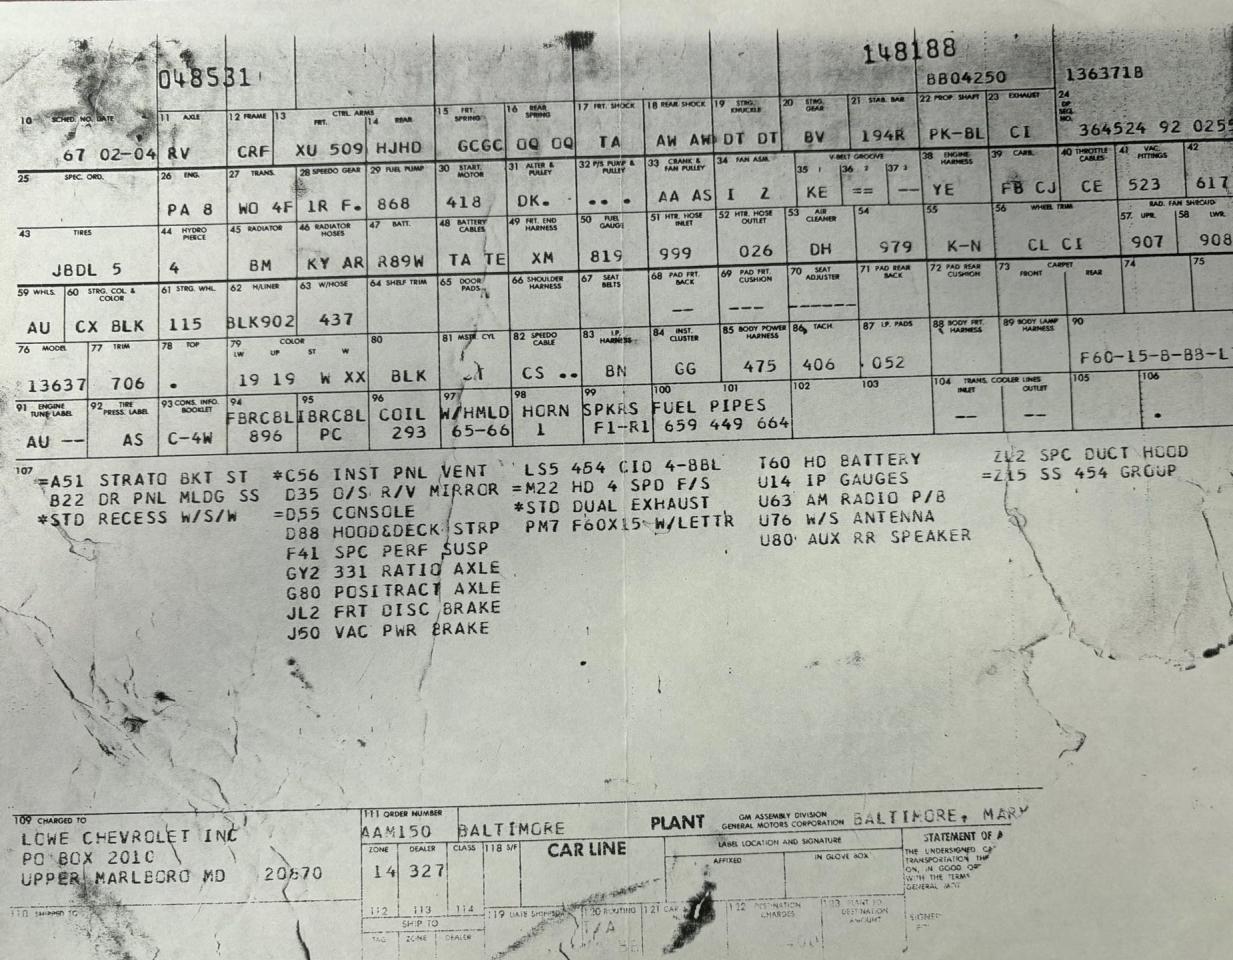 048531 148188
BB04250 136371B
10 SCHED. NO. DATE 11 AXLE 12 FRAME 13 CTRL. ARMS FRT. 14 REAR 15 FRT. SPRING 16 REAR SPRING 17 FRT. SHOCK 18 REAR SHOCK 19 STRG. KNUCKLE 20 STRG. GEAR 21 STAB. BAR 22 PROP. SHAFT 23 EXHAUST 24
67 02-04 RV CRF XU 509 HJHD GCGC OQ OQ TA AW AW DT DT BV 194R PK-BL CI 364524 92 0255
25 SPEC. ORD. 26 ENG. 27 TRANS. 28 SPEEDO GEAR 29 FUEL PUMP 30 START. MOTOR 31 ALTER & PULLEY 32 P/S PUMP & PULLEY 33 CRANK & FAN PULLEY 34 FAN ASM. V-BELT GROOVE 35 1 36 2 37 3 38 ENGINE HARNESS 39 CARB. 40 THROTTLE CABLES 41 VAC. FITTINGS 42
PA 8 WO 4F 1R F. 868 418 DK. .. . AA AS I 2 KE == -- YE FB CJ CE 523 617
43 TIRES 44 HYDRO PIERCE 45 RADIATOR 46 RADIATOR HOSES 47 BATT. 48 BATTERY CABLES 49 FRT. END HARNESS 50 FUEL GAUGE 51 HTR. HOSE INLET 52 HTR. HOSE OUTLET 53 AIR CLEANER 54 55 56 WHEEL TRIM RAD. FAN SHROUD 57 UPR. 58 LWR.
JBDL 5 4 BM KY AR R89W TA TE XM 819 999 026 DH 979 K-N CL CI 907 908
59 WHLS. 60 STRG. COL & COLOR 61 STRG. WHL. 62 H/LINER 63 W/HOSE 64 SHELF TRIM 65 DOOR PADS 66 SHOULDER HARNESS 67 SEAT BELTS 68 PAD FRT. BACK 69 PAD FRT. CUSHION 70 SEAT ADJUSTER 71 PAD REAR BACK 72 PAD REAR CUSHION 73 CARPET FRONT REAR 74 75
AU CX BLK 115 BLK902 437 -- --- ------
76 MODEL 77 TRIM 78 TOP 79 COLOR LW UP ST W 80 81 MSTR. CYL 82 SPEEDO CABLE 83 I.P. HARNESS 84 INST. CLUSTER 85 BODY POWER HARNESS 86 TACH. 87 I.P. PADS 88 BODY FRT. HARNESS 89 BODY LAMP HARNESS 90
13637 706 . 19 19 W XX BLK CS .. BN GG 475 406 .052 F60-15-B-BB-L
91 ENGINE TUNE LABEL 92 TIRE PRESS. LABEL 93 CONS. INFO. BOOKLET 94 95 96 97 98 99 100 101 102 103 104 TRANS. COOLER LINES INLET OUTLET 105 106
FBRCBL IBRCBL COIL W/HMLD HORN SPKRS FUEL PIPES
AU -- AS C-4W 896 PC 293 65-66 1 F1-R1 659 449 664 -- -- .
107 =A51 STRATO BKT ST *C56 INST PNL VENT LS5 454 CID 4-BBL T60 HD BATTERY ZL2 SPC DUCT HOOD
B22 DR PNL MLDG SS D35 O/S R/V MIRROR =M22 HD 4 SPD F/S U14 IP GAUGES =Z15 SS 454 GROUP
*STD RECESS W/S/W =D55 CONSOLE *STD DUAL EXHAUST U63 AM RADIO P/B
D88 HOOD&DECK STRP PM7 F60X15 W/LETTR U76 W/S ANTENNA
F41 SPC PERF SUSP U80 AUX RR SPEAKER
GY2 331 RATIO AXLE
G80 POSITRACT AXLE
JL2 FRT DISC BRAKE
J50 VAC PWR BRAKE
109 CHARGED TO 111 ORDER NUMBER
LOWE CHEVROLET INC AAM150 BALTIMORE PLANT GM ASSEMBLY DIVISION GENERAL MOTORS CORPORATION BALTIMORE, MARY
PO BOX 2010 ZONE DEALER CLASS 118 S/F CAR LINE LABEL LOCATION AND SIGNATURE STATEMENT OF
UPPER MARLBORO MD 20870 14 327 AFFIXED IN GLOVE BOX
THE UNDERSIGNED
TRANSPORTATION
ON, IN GOOD
WITH THE TERMS
GENERAL
110 SHIPPED TO 112 113 114 119 DATE SHIPPED 120 ROUTING 121 CAR 122 DESTINATION CHARGES 123 PLANT TO DESTINATION AMOUNT
SHIP TO
TAG ZONE DEALER